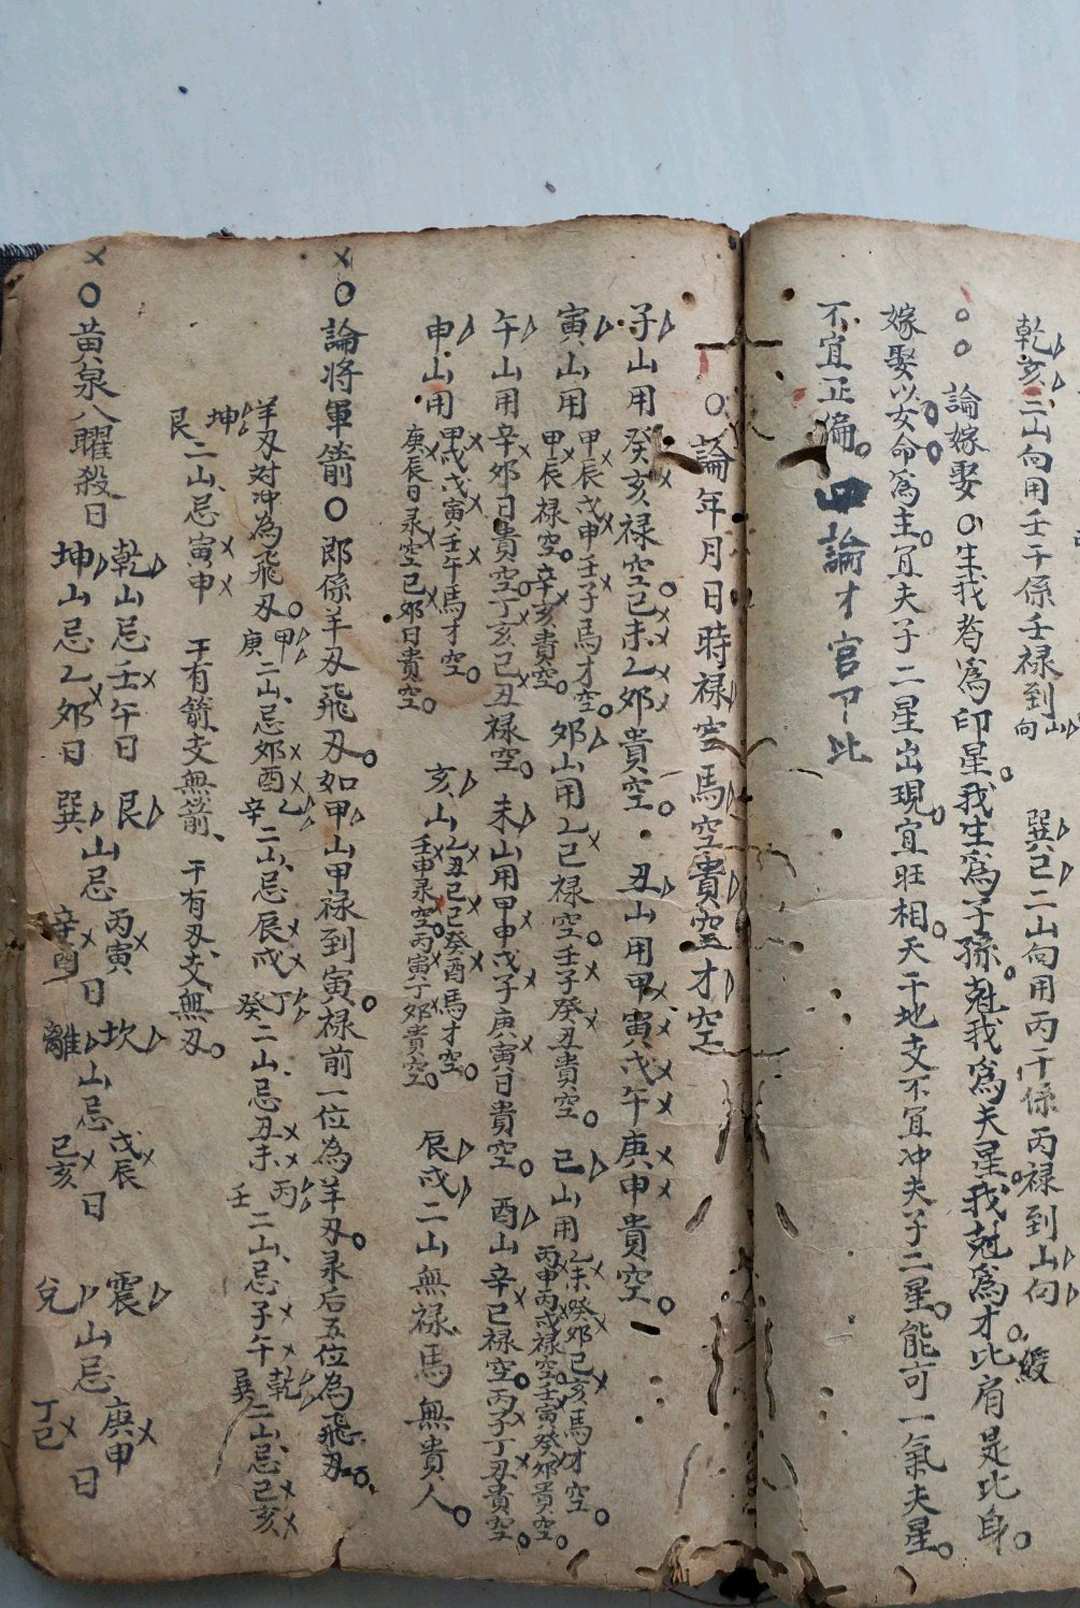 乾亥二山向用壬干係壬禄到山向 巽巳二山向用丙干係丙禄到山向
論嫁娶 生我者爲印星我生爲子孫尅我爲夫星我尅爲才比肩是比身
嫁娶以女命爲主宜夫子二星出現宜旺相天干地支不宜冲夫子二星能可一氣夫星
不宜正偏 四論才官卩比
論年月日時禄空馬空貴空才空
子山用癸亥禄空己未乙夘貴空 丑山用甲寅戊午庚申貴空
寅山用甲辰戊申壬子馬才空甲辰禄空辛亥貴空 夘山用乙已禄空壬子癸丑貴空 已山用乙未癸夘已亥馬才空丙申丙戌禄空壬寅癸夘貴空
午山用辛夘日貴空丁亥己丑禄空 未山用甲申戊子庚寅日貴空 酉山辛已禄空丙子丁丑貴空
申山用甲戌戊寅壬午馬才空庚辰日彔空己夘日貴空 亥山乙丑已已癸酉馬才空壬申彔空丙寅丁夘貴空 辰戌二山無禄馬無貴人
論将軍箭 郎係羊刃飛刃如甲山甲禄到寅禄前一位為羊刃彔后五位為飛刃
羊刃対冲為飛刃 甲庚二山忌夘酉 乙辛二山忌辰戌 丁癸二山忌丑未 丙壬二山忌子午 乾巽二山忌已亥
坤艮二山忌寅申 干有箭支無箭 干有刃支無刃
黄泉八曜殺日 乾山忌壬午日 坤山忌乙夘日 艮山忌丙寅日 巽山忌辛酉日 坎山忌戊辰日 離山忌已亥日 震山忌庚申日 兌山忌丁已日